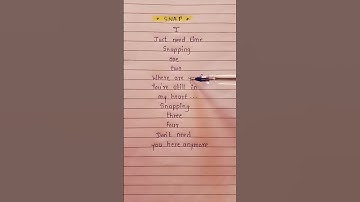 • SNAP •
I
Just need time
Snapping
one
two
Where are y
You're still in
my heart
Snapping
three
Four
Don't need
you here anymore